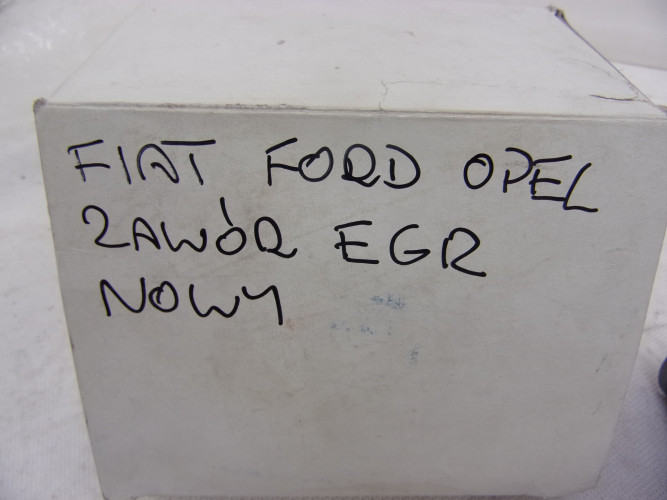 FIAT FORD OPEL
ZAWÓR EGR
NOWY